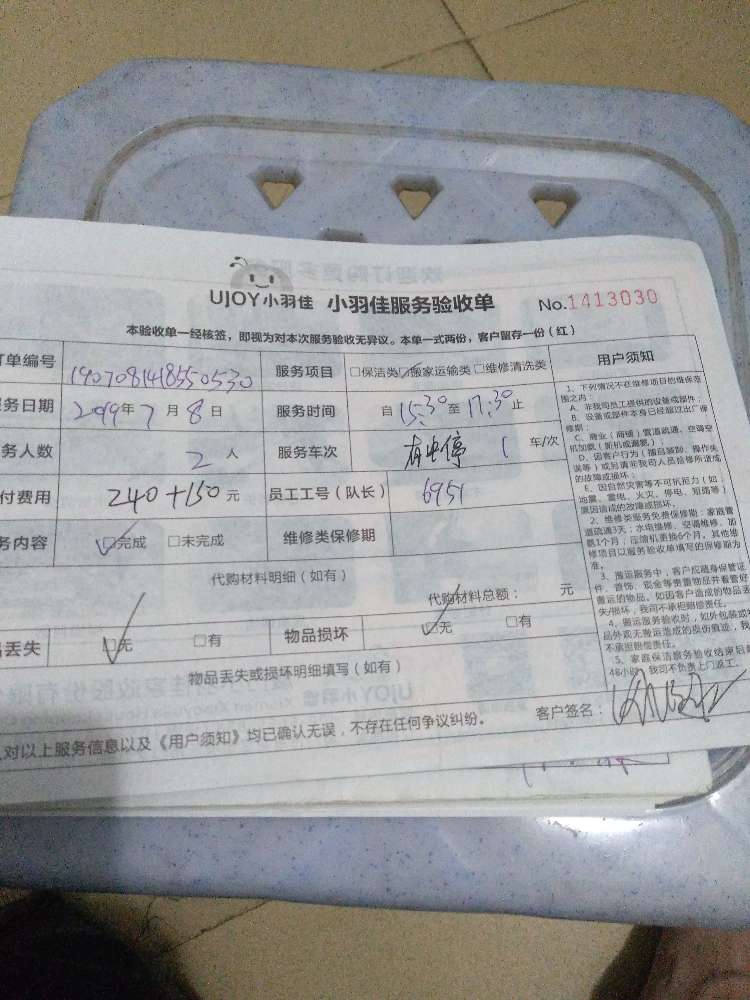 UJOY小羽佳 小羽佳服务验收单 No.1413030
本验收单一经核签，即视为对本次服务验收无异议。本单一式两份，客户留存一份（红）
单编号 190708141855 0530 服务项目 □保洁类 ☑搬家运输类 □维修清洗类
务日期 2019年7月8日 服务时间 自15:30至17:30止
务人数 2人 服务车次 1 车/次
付费用 240+150元 员工工号（队长） 6951
务内容 ☑完成 □未完成 维修类保修期
代购材料明细（如有） 代购材料总额： 元
丢失 ☑无 □有 物品损坏 ☑无 □有
物品丢失或损坏明细填写（如有）
对以上服务信息以及《用户须知》均已确认无误，不存在任何争议纠纷。 客户签名：
用户须知
1、下列情况不在维修项目的维保范
围之内：
A、非我司员工提供的设备或部件；
B、设备或部件本身已经超过出厂保
修期；
C、商业（商铺）管道疏通、空调空
机加氨（新机或漏氨）；
D、因客户行为（擅自装卸、操作失
误等）或另请非我司人员检修所造成
的故障或损坏；
E、因自然灾害等不可抗拒力（如
地震、雷电、火灾、停电、短路等）
原因造成的故障或损坏。
2、维修类服务免费保修期：家庭管
道疏通3天；水电维修、空调维修、加
氨1个月；压缩机更换6个月，其他维
修项目以服务验收单填写的保修期为
准。
3、搬运服务中，客户应随身保管证
件、首饰、现金等贵重物品并看管好
搬运的物品。如因客户造成的物品丢
失/损坏，我司不承担赔偿责任。
4、搬运服务验收时，如外包装或物
品外观无搬运造成的损伤痕迹，我
不承担赔偿责任。
5、家庭保洁服务验收结束后
48小时，我司不负责上门返工。